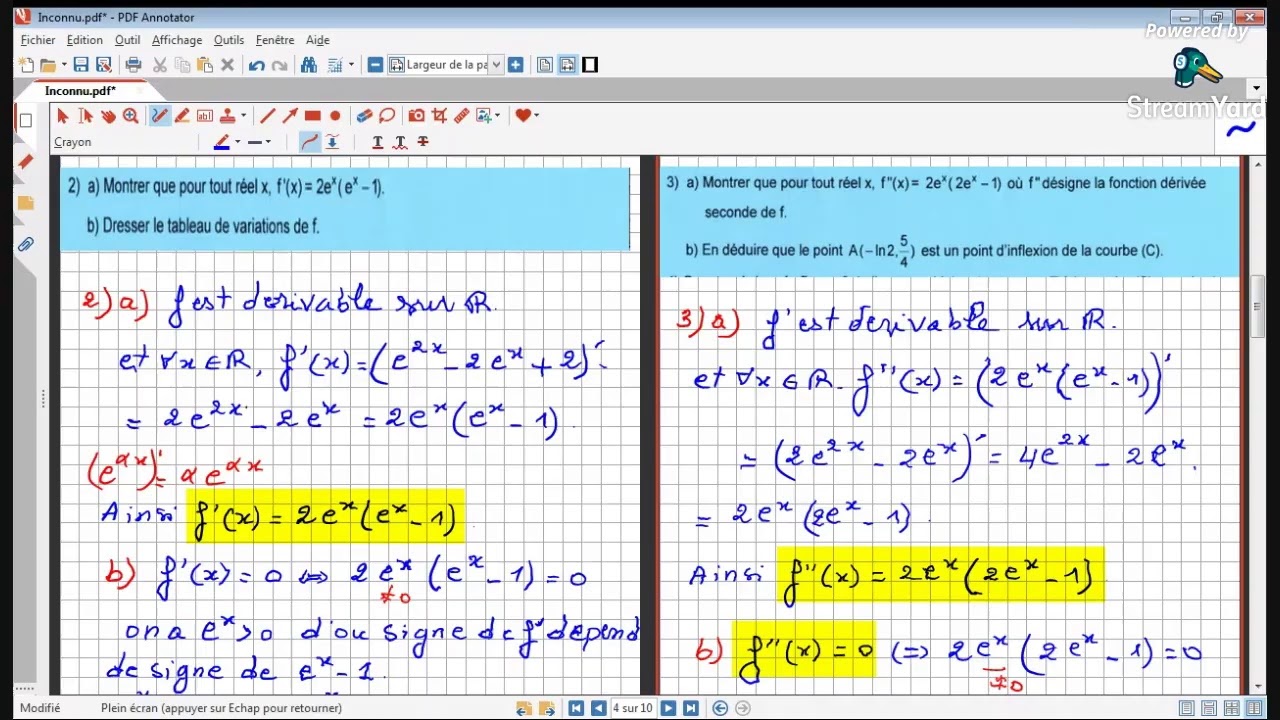 Inconnu.pdf* - PDF Annotator
Powered by
StreamYard
Fichier Edition Outil Affichage Outils Fenêtre Aide
Largeur de la pa
Inconnu.pdf*
Crayon
2) a) Montrer que pour tout réel x, f'(x) = 2eˣ(eˣ – 1).
b) Dresser le tableau de variations de f.
2) a) f est derivable sur ℝ.
et ∀x ∈ ℝ, f'(x) = (e²ˣ - 2eˣ + 2)' =
= 2e²ˣ - 2eˣ = 2eˣ(eˣ - 1)
(e^αx)' = αe^αx
Ainsi f'(x) = 2eˣ(eˣ - 1)
b) f'(x) = 0 ⇔ 2eˣ(eˣ - 1) = 0
≠0
on a eˣ > 0 d'ou signe de f' depend
de signe de eˣ - 1.
3) a) Montrer que pour tout réel x, f"(x) = 2eˣ(2eˣ – 1) où f" désigne la fonction dérivée
seconde de f.
b) En déduire que le point A(–ln2, 5/4) est un point d'inflexion de la courbe (C).
3) a) f' est derivable sur ℝ.
et ∀x ∈ ℝ. f''(x) = (2eˣ(eˣ - 1))'
= (2e²ˣ - 2eˣ)' = 4e²ˣ - 2eˣ.
= 2eˣ(2eˣ - 1)
Ainsi f''(x) = 2eˣ(2eˣ - 1)
b) f''(x) = 0 (=> 2eˣ(2eˣ - 1) = 0
≠0
Modifié Plein écran (appuyer sur Echap pour retourner) 4 sur 10